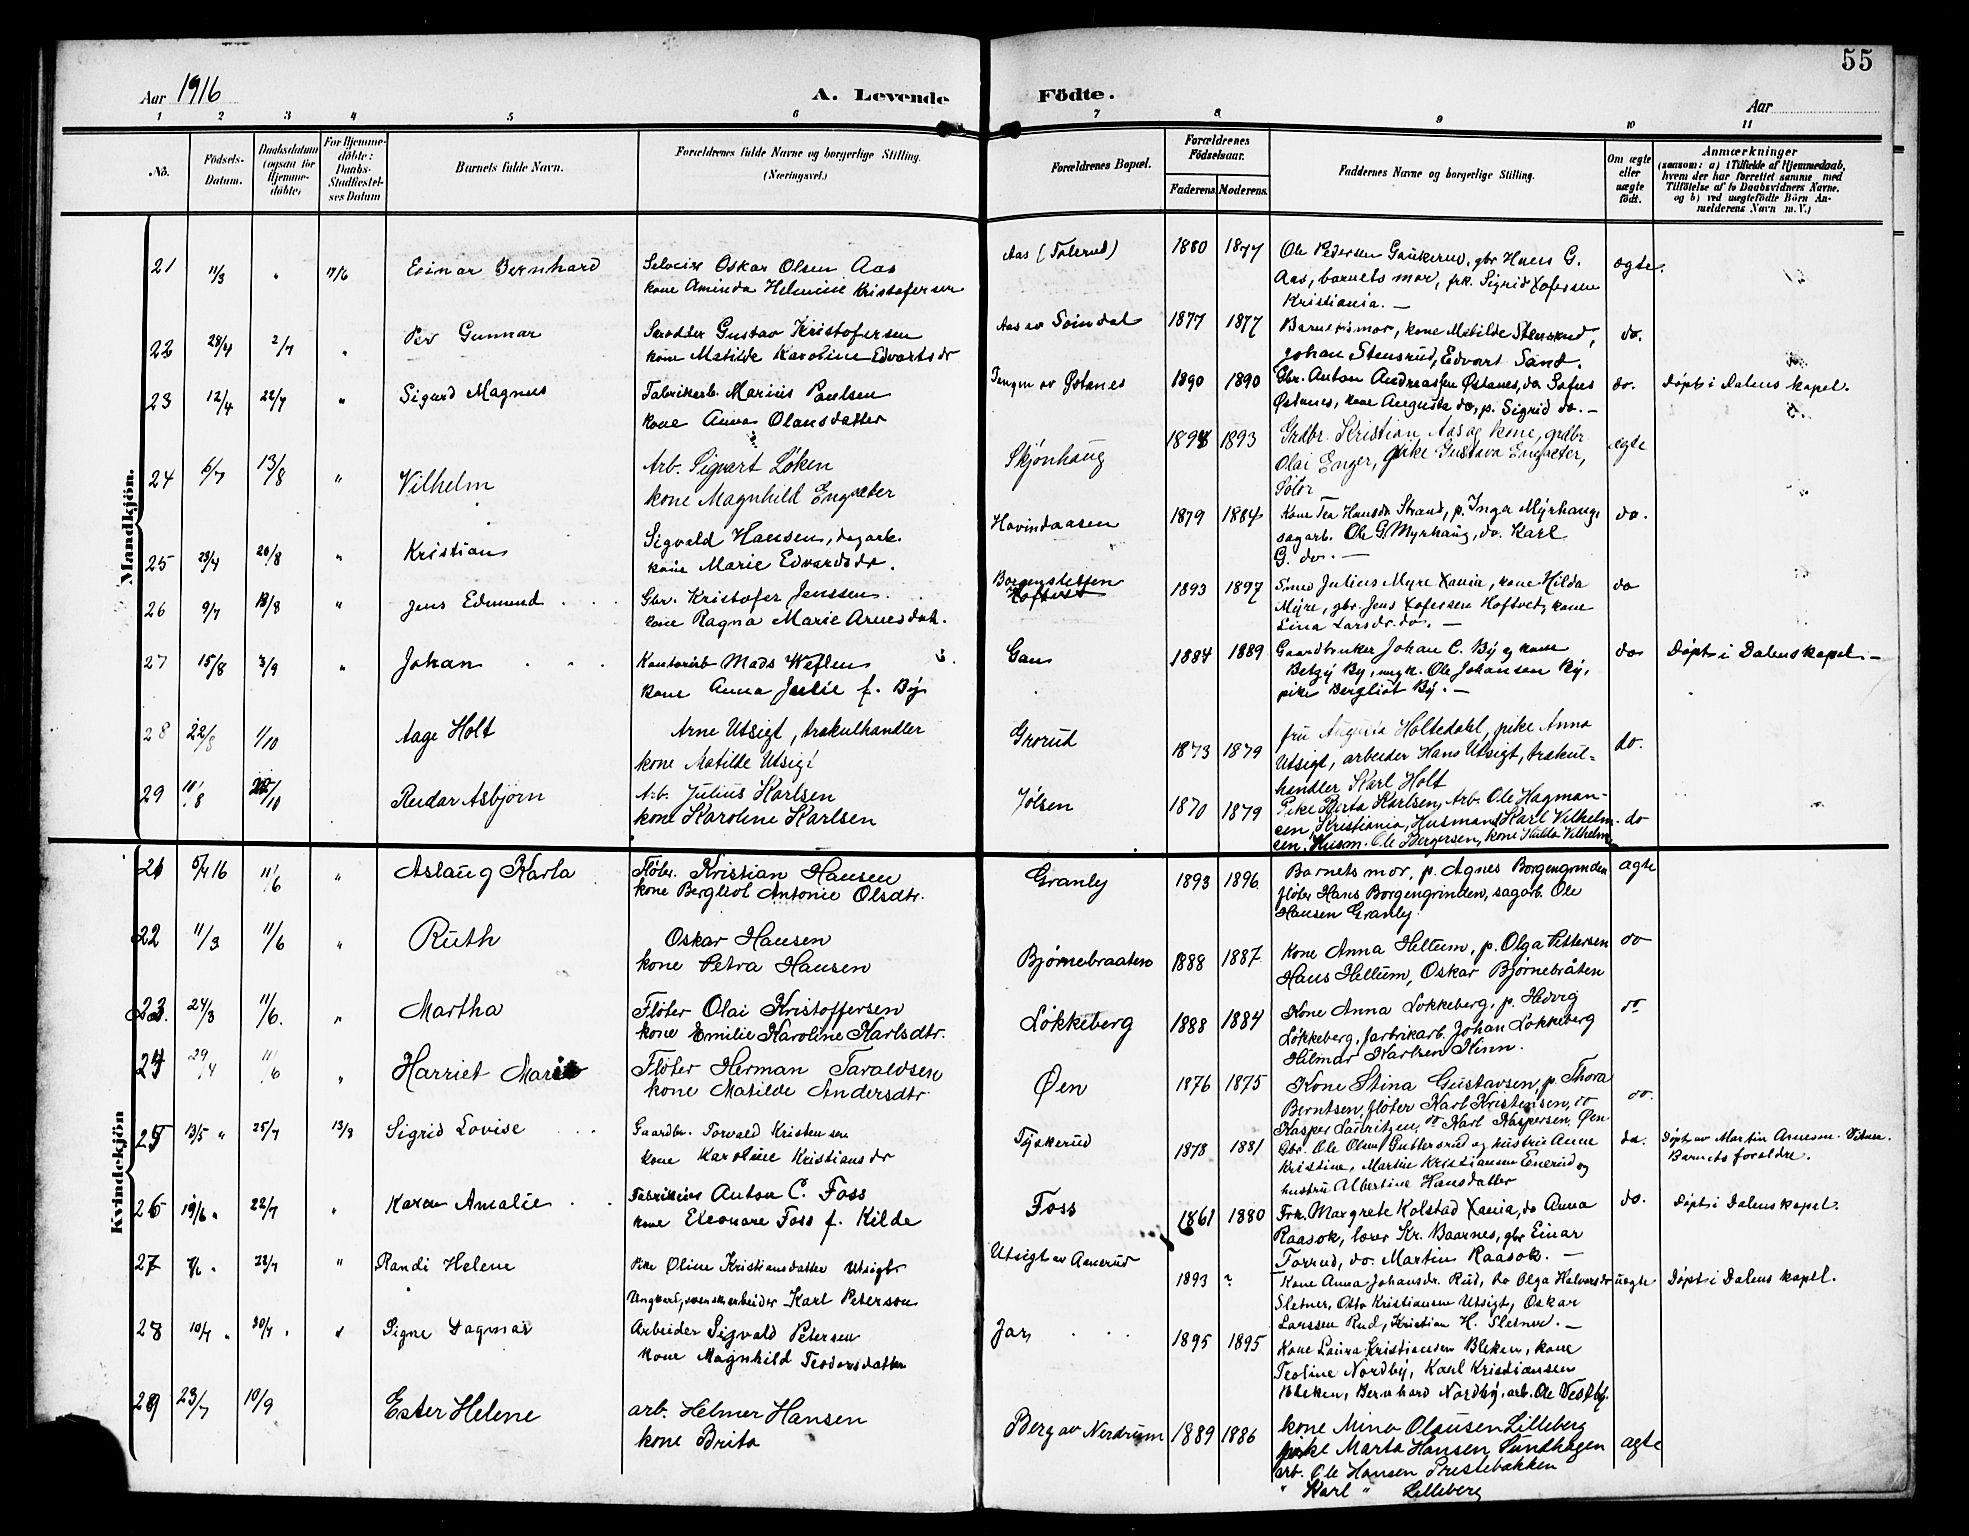 55
Aar 1916
A. Levende
Födte.
Aar
1 2 3 4 5 6 7 8 9 10 11
No.
Födsels-
Datum.
Daabsdatum
(ogsaa for
Hjemme-
döbte)
For Hjemme-
döbte:
Daabs-
Stadfæstel-
ses Datum
Barnets fulde Navn.
Forældrenes fulde Navne og borgerlige Stilling.
(Næringsvei.)
Forældrenes Bopæl.
Forældrenes
Födselsaar.
Faderens. Moderens.
Faddernes Navne og borgerlige Stilling.
Om ægte
eller
uægte
født.
Anmærkninger
(saasom: a) i Tilfælde af Hjemmedaab,
hvem der har forrettet samme med
Tilföielse af to Daabsvidners Navne.
og b) ved uægtefödte Börn An-
melderens Navn m. V.)
Mandkjön.
21 11/3 " 17/6 Einar Bernhard
Oskar Olsen Aas
kone Aminda Helmine Kristofersen
Aas (Tolerud) 1880 1877
Ole Pedersen Gaukerud, gbr Hans G.
Aas, barnets mor, frk. Sigrid Xofersen
Kristiania. —
ægte.
22 28/4 2/7 " Per Gunnar
Skrædder Gustav Kristofersen
kone Matilde Karoline Edvartsdr
Aas av Søindal 1877 1877
Barnets mor, kone Matilde Stensrud,
Johan Stensrud, Edvart Sand.
do.
23 12/4 22/7 " Sigurd Magnus
Fabrikarb. Marius Paulsen
kone Anna Olausdatter
Tangen av Østanes 1890 1890
Gbr. Anton Andreassen Østanes, do Sofus
Østanes, kone Augusta do, p. Sigrid do. —
do. Døpt i Dalens kapel.
24 6/7 13/8 " Vilhelm
Arb. Sigvart Løken
kone Magnhild Engsæter
Skjønhaug 1894 1893
Grdbr. Kristian Aas og kone, grdbr
Olai Enger, pike Gustava Engsæter,
Solør
ægte
25 23/4 20/8 " Kristian
Sigvald Hansen, dagarb.
kone Marie Edvardsdr.
Hovindaasen 1879 1884
Kone Tea Hansdr Strand, p. Inga Myrhaug,
sagarb. Ole G. Myrhaug, do. Karl
G. do. —
do.
26 9/7 13/8 " Jens Edmund
Gbr. Kristofer Jenssen
kone Ragna Marie Arnesdat.
Borgenstetten
Hoftvet
1893 1897
Smed Julius Myre Xania, kone Hilda
Myre, gbr. Jens Xofersen Hoftvet, kone
Lina Larsdr. do. —
do
27 15/8 3/9 " Johan
Kontorist Mads Weflen
kone Anna Julie f. By
Gan 1884 1889
Gaardbruker Johan C. By og kone
Betzy By, ungk. Ole Johansen By,
pike Bergliot By. —
do Døpt i Dalens kapel. —
28 22/8 1/10 Aage Holt
Arne Utsigt, trækulhandler
kone Matilde Utsigt
Grorud 1873 1879
fru Augusta Holtedahl, pike Anna
Utsigt, arbeider Hans Utsigt, trækul-
handler Karl Holt
do.
29 10/8 22/10 Reidar Asbjørn
Arb. Julius Karlsen
kone Karoline Karlsen
Jølsen 1870 1879
Pike Berta Karlsen, Arb. Ole Hagman-
sen, Kristiania, Husmand Karl Vilhelm-
sen, Husm. Ole Bergersen, kone Hilda Vilhelm
do
Kvindekjön
21 5/4 16 11/6 " Aslaug Karla
Fløter Kristian Hansen
kone Bergliot Antonie Olsdtr.
Granly 1893 1896
Barnets mor, p. Agnes Borgengrinden
fløter Hans Borgengrinden, sagarb. Ole
Hansen Granly
ægte
22 11/3 11/6 " Ruth
Oskar Hansen
kone Petra Hansen
Bjørnebraaten 1888 1887
Kone Anna Hellum, p. Olga Pettersen
Hans Hellum, Oskar Bjørnebråten
do
23 24/3 11/6. " Martha
Fløter Olai Kristoffersen
kone Emilie Karoline Karlsdtr.
Løkkeberg 1888 1884
Kone Anna Løkkeberg, p. Hedvig
Løkkeberg, farbrikarb. Johan Løkkeberg
Hilmar Karlsen Kinn.
do
24 29/4 11/6 " Harriet Marie
Fløter Herman Taraldsen
kone Matilde Andersdtr
Øen 1876 1875
Kone Stina Gustavsen, p. Thora
Berntsen, fløter Karl Kristensen, do
Kasper Lauritzen, do Karl Kaspersen, Øen
do.
25 13/5 " 25/7 13/8 Sigrid Lovise
Gaardbr. Torvald Kristensen
kone Karoline Kristiansdr
Tyskerud 1878 1881
Gbr. Ole Olsen Guttersrud og hustru Anne
Kristine, Martin Kristiansen Enerud og
hustru Albertine Hansdatter
do. Døpt av Martin Arnesen. Vitner.
Barnets forældre.
26 19/6 " 22/7 " Karen Amalie
Anton C. Foss
kone Eleonare Foss f. Kilde
Foss 1861 1880
Frk. Margrete Kolstad Xania, do Anna
Raasok, lærer Kr. Baarnes, gbr Einar
Forrud, do. Martin Raasok. —
do. Døpt i Dalens kapel.
27 " 22/7 " Randi Helene
Pike Oline Kristiansdatter Utsigt
Ungkarl, svensk arbeider Karl Peterson
Utsigt av Aanerud 1893 ?
Kone Anna Johansdr. Rud, do Olga Halvorsdr
Sletner, Otto Kristiansen Utsigt, Oskar
Larssen Rud, Kristian H. Sletner. —
uægte Døpt i Dalens kapel.
28 10/7 " 30/7 " Signe Dagmar
Arbeider Sigvald Petersen
kone Magnhild Teodorsdatter
Jar 1895 1895
Kone Laura Kristiansen Bleken, kone
Teoline Nordby, Karl Kristiansen
Bleken, Bernhard Nordby, arb. Ole Vestby.
29 23/7 10/9 Ester Helene
arb. Helmer Hansen
kone Brita
Berg av Nerdrum 1889 1886
kone Mina Olausen Lilleberg
pike Marta Hansen Sundhagen
arb. Ole Hansen Prestebakken
" Karl " Lilleberg
ægte